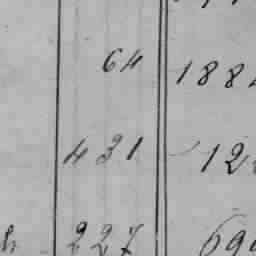 64 188
431 12
227 69